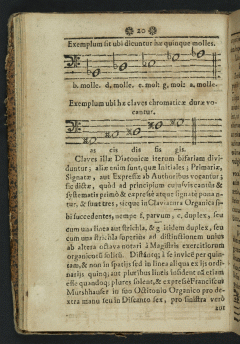 20
Exemplum sit ubi dicuntur hæ quinque molles.
b. molle. d. molle. e. molt g. mol: a. molle.
Exemplum ubi hæ claves chromaticæ duræ vo-
cantur.
as cis dis fis gis.
Claves illæ Diatonicæ iterum bifariam divi-
duntur; aliæ enim sunt, quæ Initiales; Primariæ,
Signatæ, aut Expressæ ab Authoribus vocantur,
sic dictæ, quòd ad principium cujusvis cantûs &
systematis primò & expresse atque signatè ponan-
tur, & sunt tres, sicque in Claviatura Organica si-
bi succedentes, nempe f, parvum, c, duplex, seu
cum una linea aut strichla, & g itidem duplex, seu
cum una strichla superiùs ad distinctionem unius
ab altera octava notari à Magistris exercitiorum
organicorum solitis. Distinctæ; à se invicem per quin-
tam, & non in spatiis sed in linea aliqua ex iis ordi-
nariis quinque, aut pluribus lineis insident
esse quandoque plures solent, & expresse Franciscus
Murshhauser in suo Octitonio Organico pro dex-
tra manu seu in Discantu sex, pro sinistra verò
aut